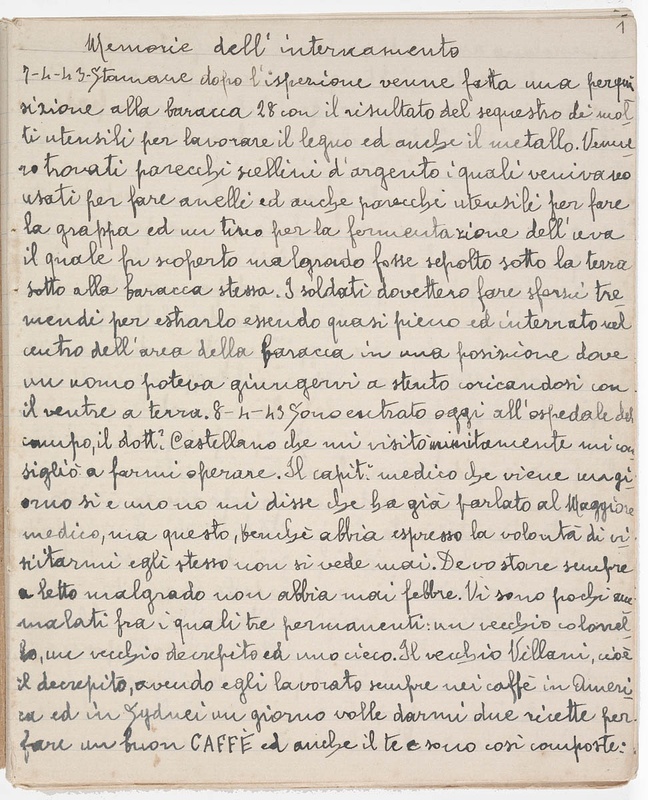 1
Memorie dell'internamento
7-4-43-Stamane dopo l'ispezione venne fatta una perqui
sizione alla baracca 28 con il risultato del sequestro di mol-
ti utensili per lavorare il legno ed anche il metallo. Venne-
ro trovati parecchi scellini d'argento i quali venivano
usati per fare anelli ed anche parecchi utensili per fare
la grappa ed un tino per la fermentazione dell'uva
il quale fu scoperto malgrado fosse sepolto sotto la terra
sotto alla baracca stessa. I soldati dovettero fare sforzi tre-
mendi per estrarlo essendo quasi pieno ed interrato nel
centro dell'area della baracca in una posizione dove
un uomo poteva giungervi a stento coricandosi con
il ventre a terra. 8-4-43 Sono entrato oggi all'ospedale del
campo, il dott.: Castellano che mi visitò minutamente mi con
sigliò a farmi operare. Il capit.: medico che viene un gi-
orno si e uno no mi disse che ha già parlato al Maggiore
medico, ma questo, benchè abbia espresso la volontà di vi-
sitarmi egli stesso non si vede mai. Devo stare sempre
a letto malgrado non abbia mai febbre. Vi sono pochi am
malati fra i quali tre permanenti: un vecchio colonel-
lo, un vecchio decrepito ed uno cieco. Il vecchio Villani, cioè
il decrepito, avendo egli lavorato sempre nei caffè in Ameri-
ca ed in Sydnei un giorno volle darmi due ricette per
fare un buon CAFFÈ ed anche il te e sono così composte: